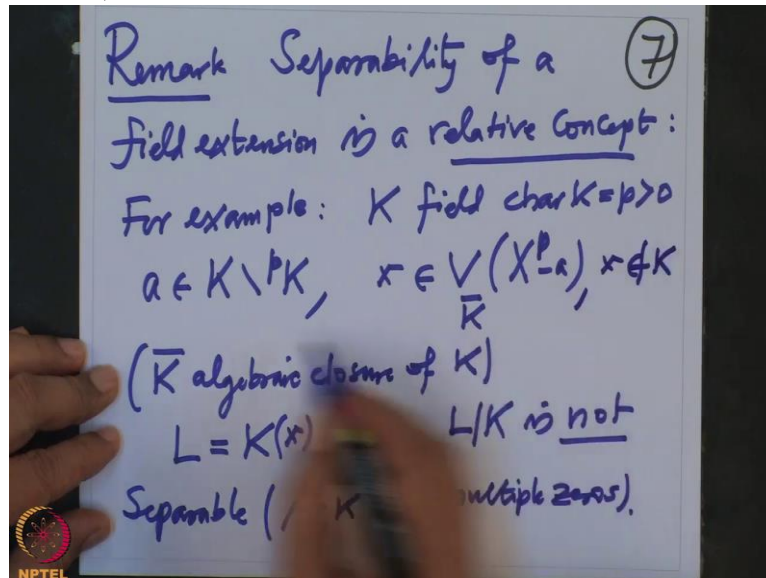 Remark Separability of a 7
field extension is a relative Concept:
For example: K field char K = p>0
a ∈ K \ ᵖK, x ∈ V_K̄ (Xᵖ-a), x ∉ K
(K̄ algebraic closure of K)
L = K(x) L/K is not
Separable ( K multiple zeros).
NPTEL